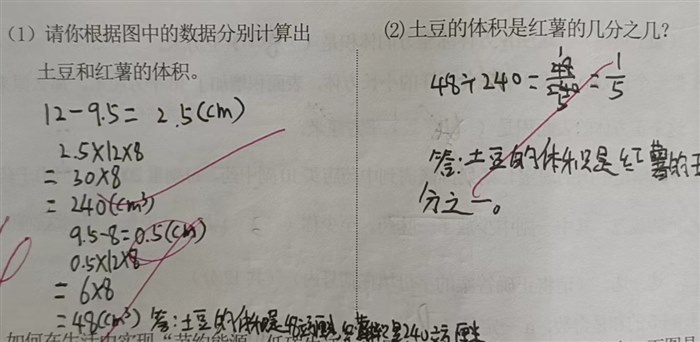 (1) 请你根据图中的数据分别计算出
土豆和红薯的体积。
12-9.5= 2.5(cm)
2.5×12×8
=30×8
=240(cm³)
9.5-8=0.5(cm)
0.5×12×8
=6×8
=48(cm³) 答:土豆的体积是48立方厘米,红薯的体积是240立方厘米
(2) 土豆的体积是红薯的几分之几?
48÷240=48/240=1/5
答:土豆的体积是红薯的五
分之一。
如何在生活中实现“节约能源